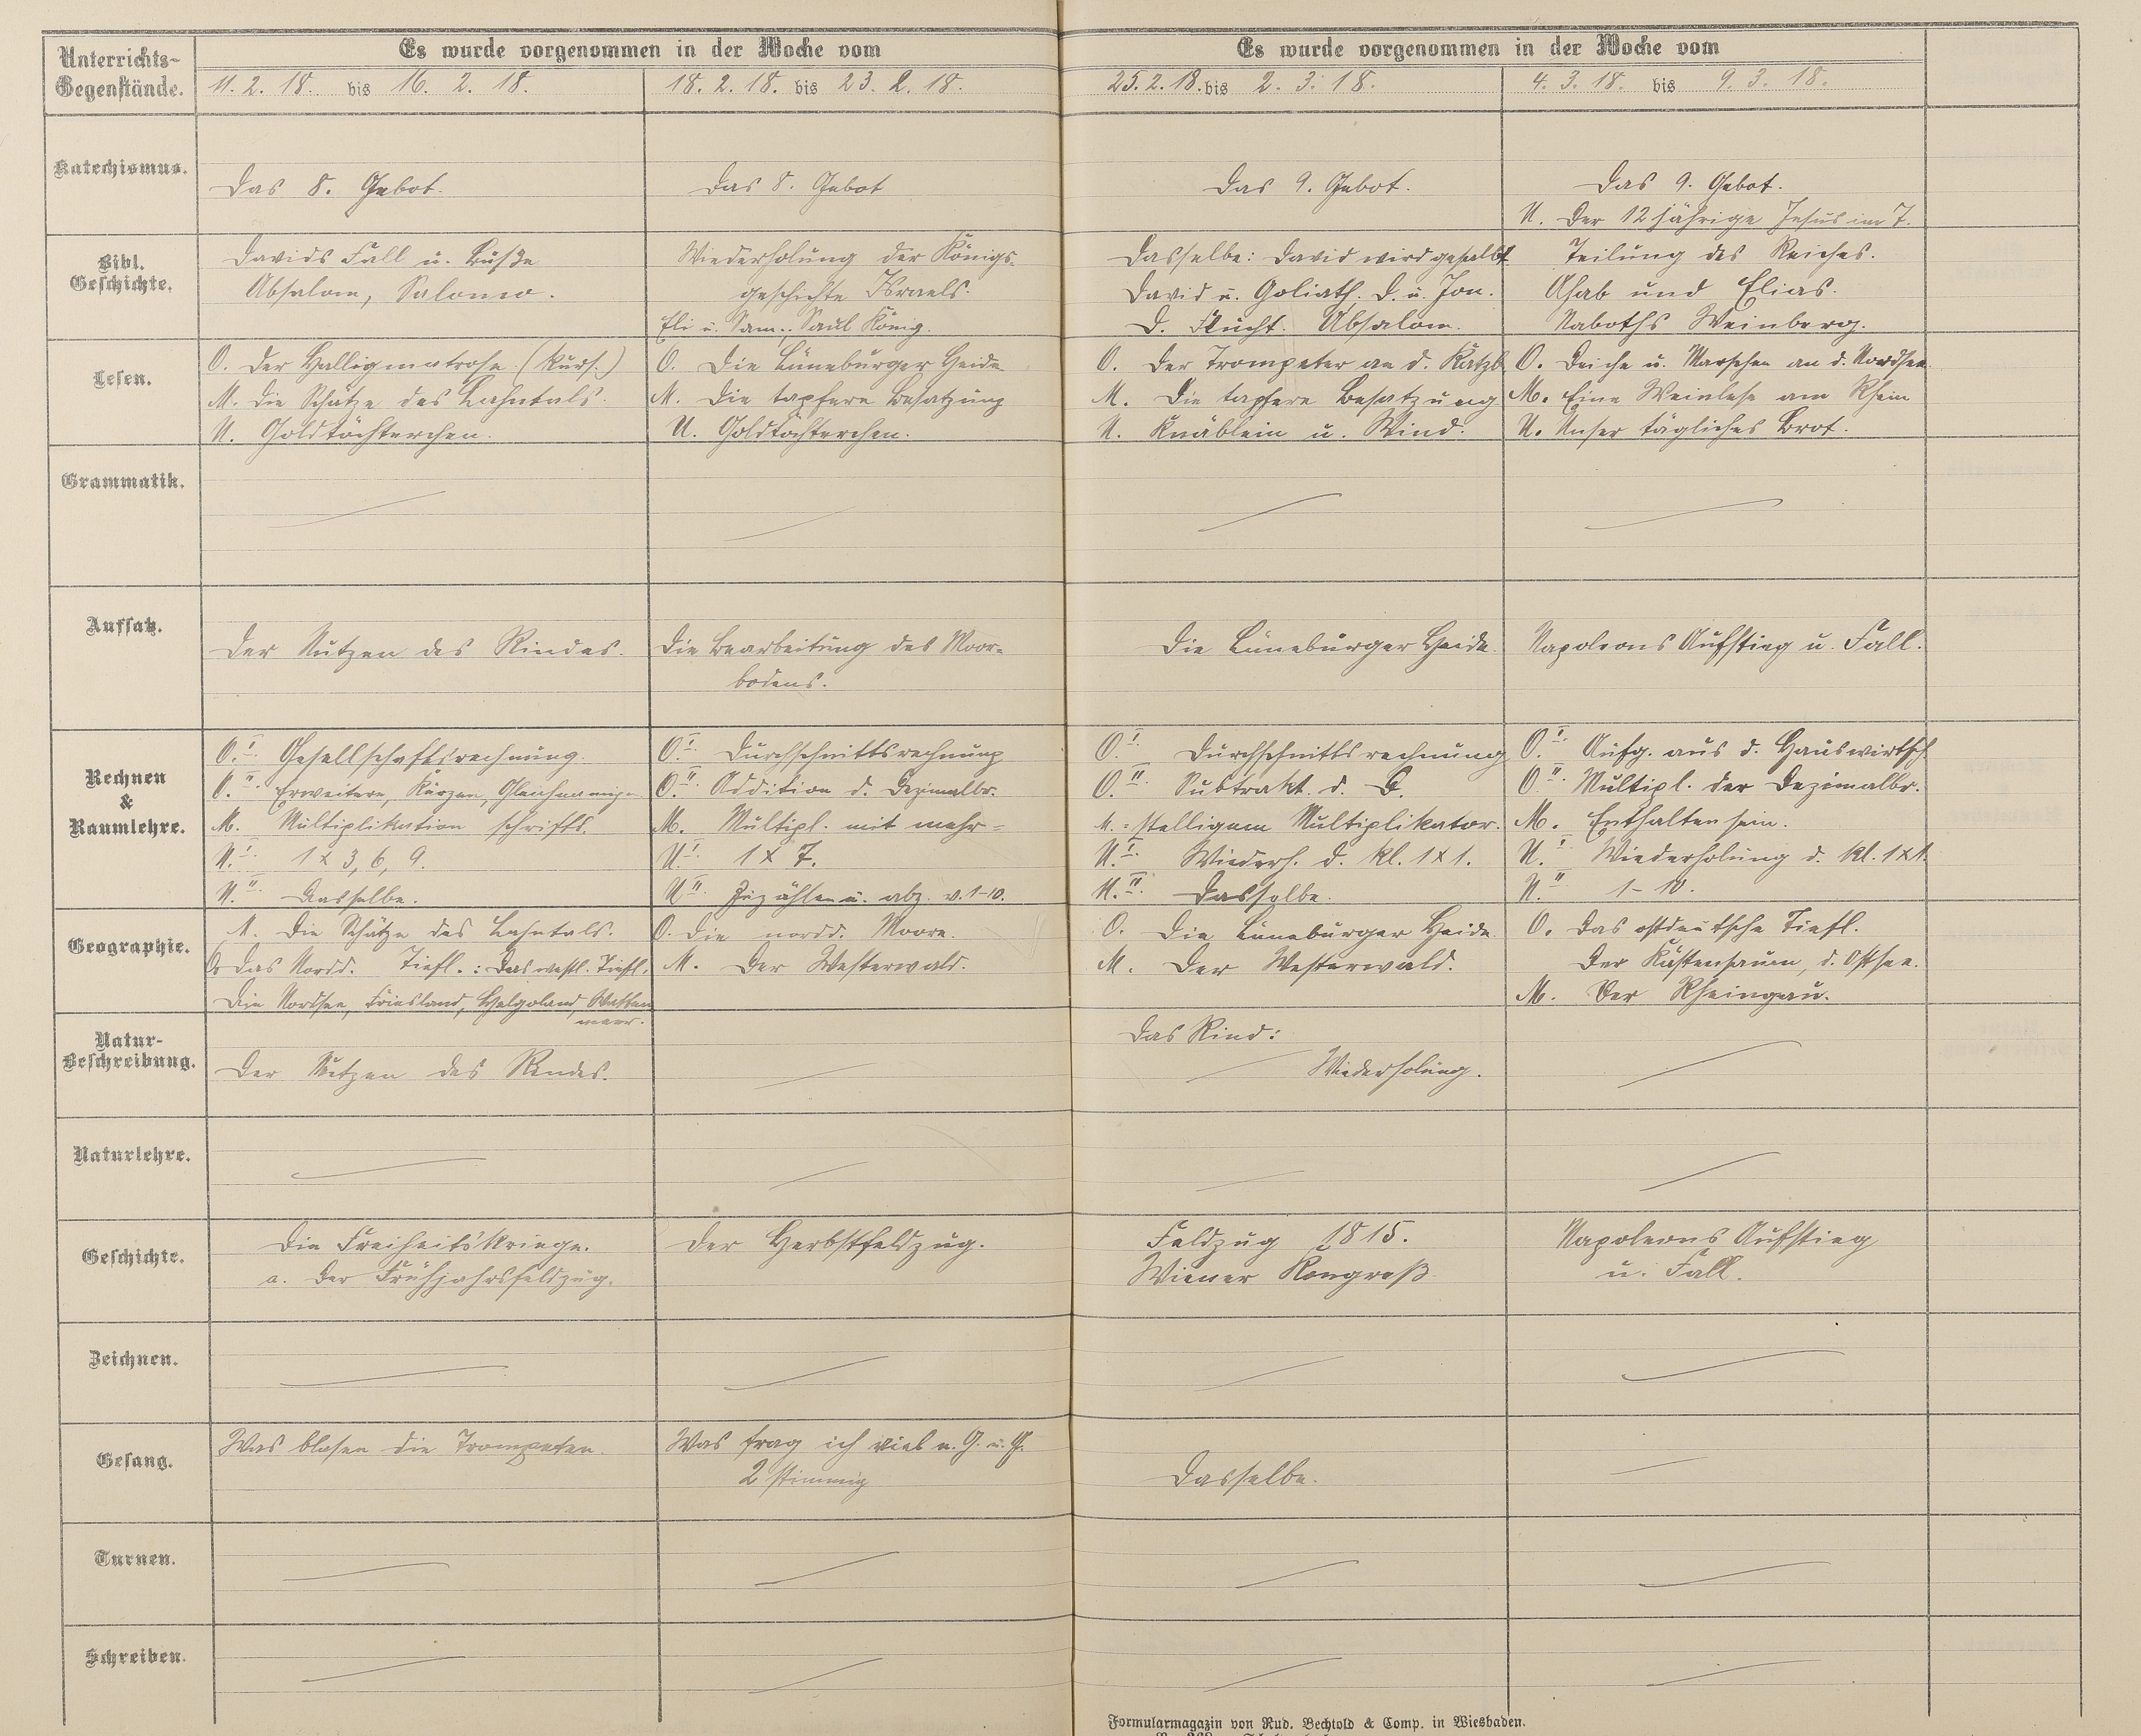 Unterrichts-
Gegenstände.
Es wurde vorgenommen in der Woche vom
Es wurde vorgenommen in der Woche vom
11. 2. 18. bis 16. 2. 18.
18. 2. 18. bis 23. 2. 18.
25. 2. 18. bis 2. 3. 18.
4. 3. 18. bis 9. 3. 18.
Katechismus.
Das 8. Gebot.
Das 8. Gebot
Das 9. Gebot.
Das 9. Gebot.
U. Der 12 jährige Jesus im T.
Bibl.
Geschichte.
Davids Fall u. Buße
Absalom, Salomo.
Wiederholung der Königs-
geschichte Israels.
Eli u. Sam., Saul König.
Dasselbe: David wird gesalbt
David u. Goliath. D. u. Jon.
D. Flucht. Absalom.
Teilung des Reiches.
Ahab und Elias.
Naboths Weinberg.
Lesen.
O. Der Halligmatrose. (kurs.)
M. Die Schätze des Lahntals.
U. Goldtöchterchen.
O. Die Lüneburger Heide
M. Die tapfere Besatzung
U. Goldtöchterchen.
O. Der Trompeter an d. Katzb.
M. Die tapfere Besatzung
U. Knäblein u. Wind.
O. Deiche u. Marschen an d. Nordsee
M. Eine Weinlese am Rhein
U. Unser tägliches Brot.
Grammatik.
Aufsatz.
Der Nutzen des Rindes.
Die Bearbeitung des Moor-
bodens.
Die Lüneburger Heide
Napoleons Aufstieg u. Fall.
Rechnen
&
Raumlehre.
O. I. Gesellschaftsrechnung.
O. II. Erweitern, Kürzen, Gleichnamig-
M. Multiplikation schriftl.
U. I. 1 x 3, 6, 9.
U. II. Dasselbe.
O. I. Durchschnittsrechnung
O. II. Addition d. Dezimalbr.
M. Multipl. mit mehr-
U. I. 1 x 7.
U. II. Zuzählen u. abz. v. 1-10.
O. I. Durchschnittsrechnung
O. II. Subtrakt. d. D.
M. -stelligem Multiplikator.
U. I. Wiederh. d. kl. 1x1.
U. II. Dasselbe.
O. I. Aufg. aus d. Hauswirtsch.
O. II. Multipl. der Dezimalbr.
M. Enthaltensein.
U. I. Wiederholung d. kl. 1x1.
U. II. 1-10.
Geographie.
M. Die Schätze des Lahntals.
O. Das Nordd. Tiefl.: Das westl. Tiefl.
Die Nordsee, Friesland, Helgoland, Watten
meer.
O. Die nordd. Moore.
M. Der Westerwald.
O. Die Lüneburger Heide
M. Der Westerwald.
O. Das ostdeutsche Tiefl.
Der Küstensaum, d. Ostsee.
M. Der Rheingau.
Natur-
Beschreibung.
Der Nutzen des Rindes.
Das Rind:
Wiederholung.
Naturlehre.
Geschichte.
Die Freiheitskriege.
a. Der Frühjahrsfeldzug.
Der Herbstfeldzug.
Feldzug 1815.
Wiener Kongreß
Napoleons Aufstieg
u. Fall.
Zeichnen.
Gesang.
Was blasen die Trompeten.
Was frag ich viel n. G. u. G.
2 stimmig
Dasselbe.
Turnen.
Schreiben.
Formularmagazin von Rud. Bechtold & Comp. in Wiesbaden.